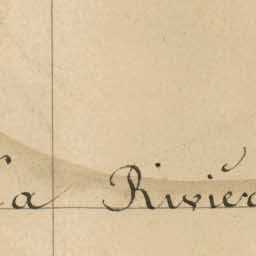 La Rivièr